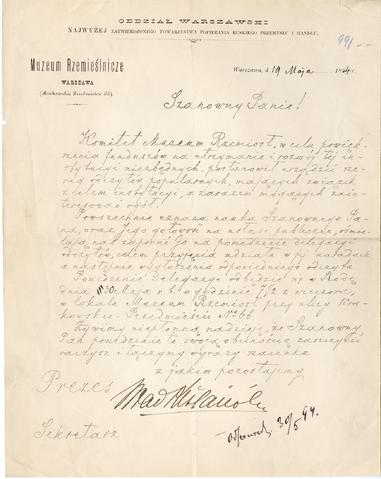 ODDZIAŁ WARSZAWSKI
NAJWYŻEJ ZATWIERDZONEGO TOWARZYSTWA POPIERANIA RUSKIEGO PRZEMYSŁU I HANDLU.
991
Muzeum Rzemieślnicze
WARSZAWA
(Krakowskie Przedmieście 66)
Warszawa, d. 19 Maja 1894 r.
Szanowny Panie!
Komitet Muzeum Rzemiosł, w celu powięk-
szenia funduszów na utrzymanie i rozwój tej in-
stytucyi niezbędnych, postanowił urządzić sze-
reg odczytów popularnych, mających związek
z celem instytucyi, a zarazem mogących zain-
teresować ogół.
Powszechnie uznana nauka Szanownego Pa-
na, oraz Jego gotowość na usługi publiczne, ośmie-
lają nas zaprosić Go na posiedzenie delegacyi
odczytów, celem przyjęcia udziału w jej naradach
a następnie wygłoszenia odpowiedniego odczytu
Posiedzenie Delegacyi odbędzie się w Środę
dnia 30 Maja r. b. o godzinie 7 1/2 z wieczora,
w lokalu Muzeum Rzemiosł przy ulicy Kra-
kowskie-Przedmieście No 66.
Żywimy niepłonną nadzieję, że Szanowny
Pan posiedzenie to swoją obecnością zaszczycić
raczysz i łączymy wyrazy szacunku
z jakim pozostajemy
Prezes
Sekretarz
30/5 94.